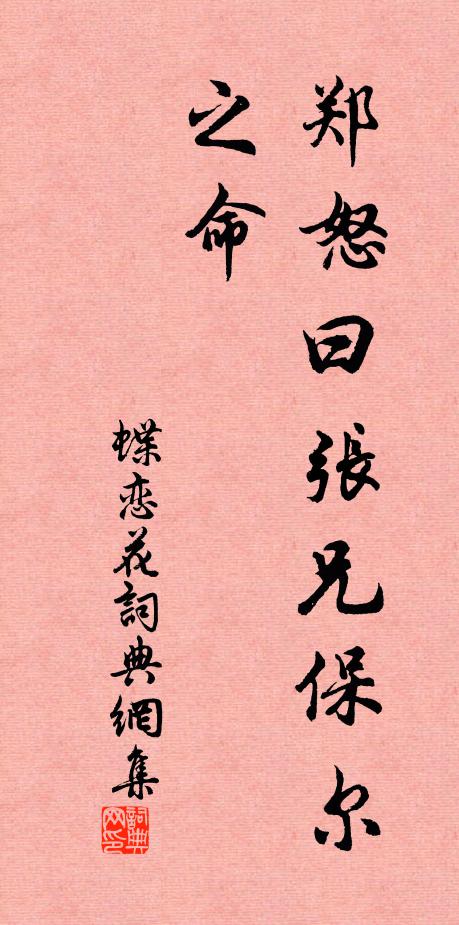 郑怒曰張兄保尔
之命
蝶恋花詞典網集
詞典
网印